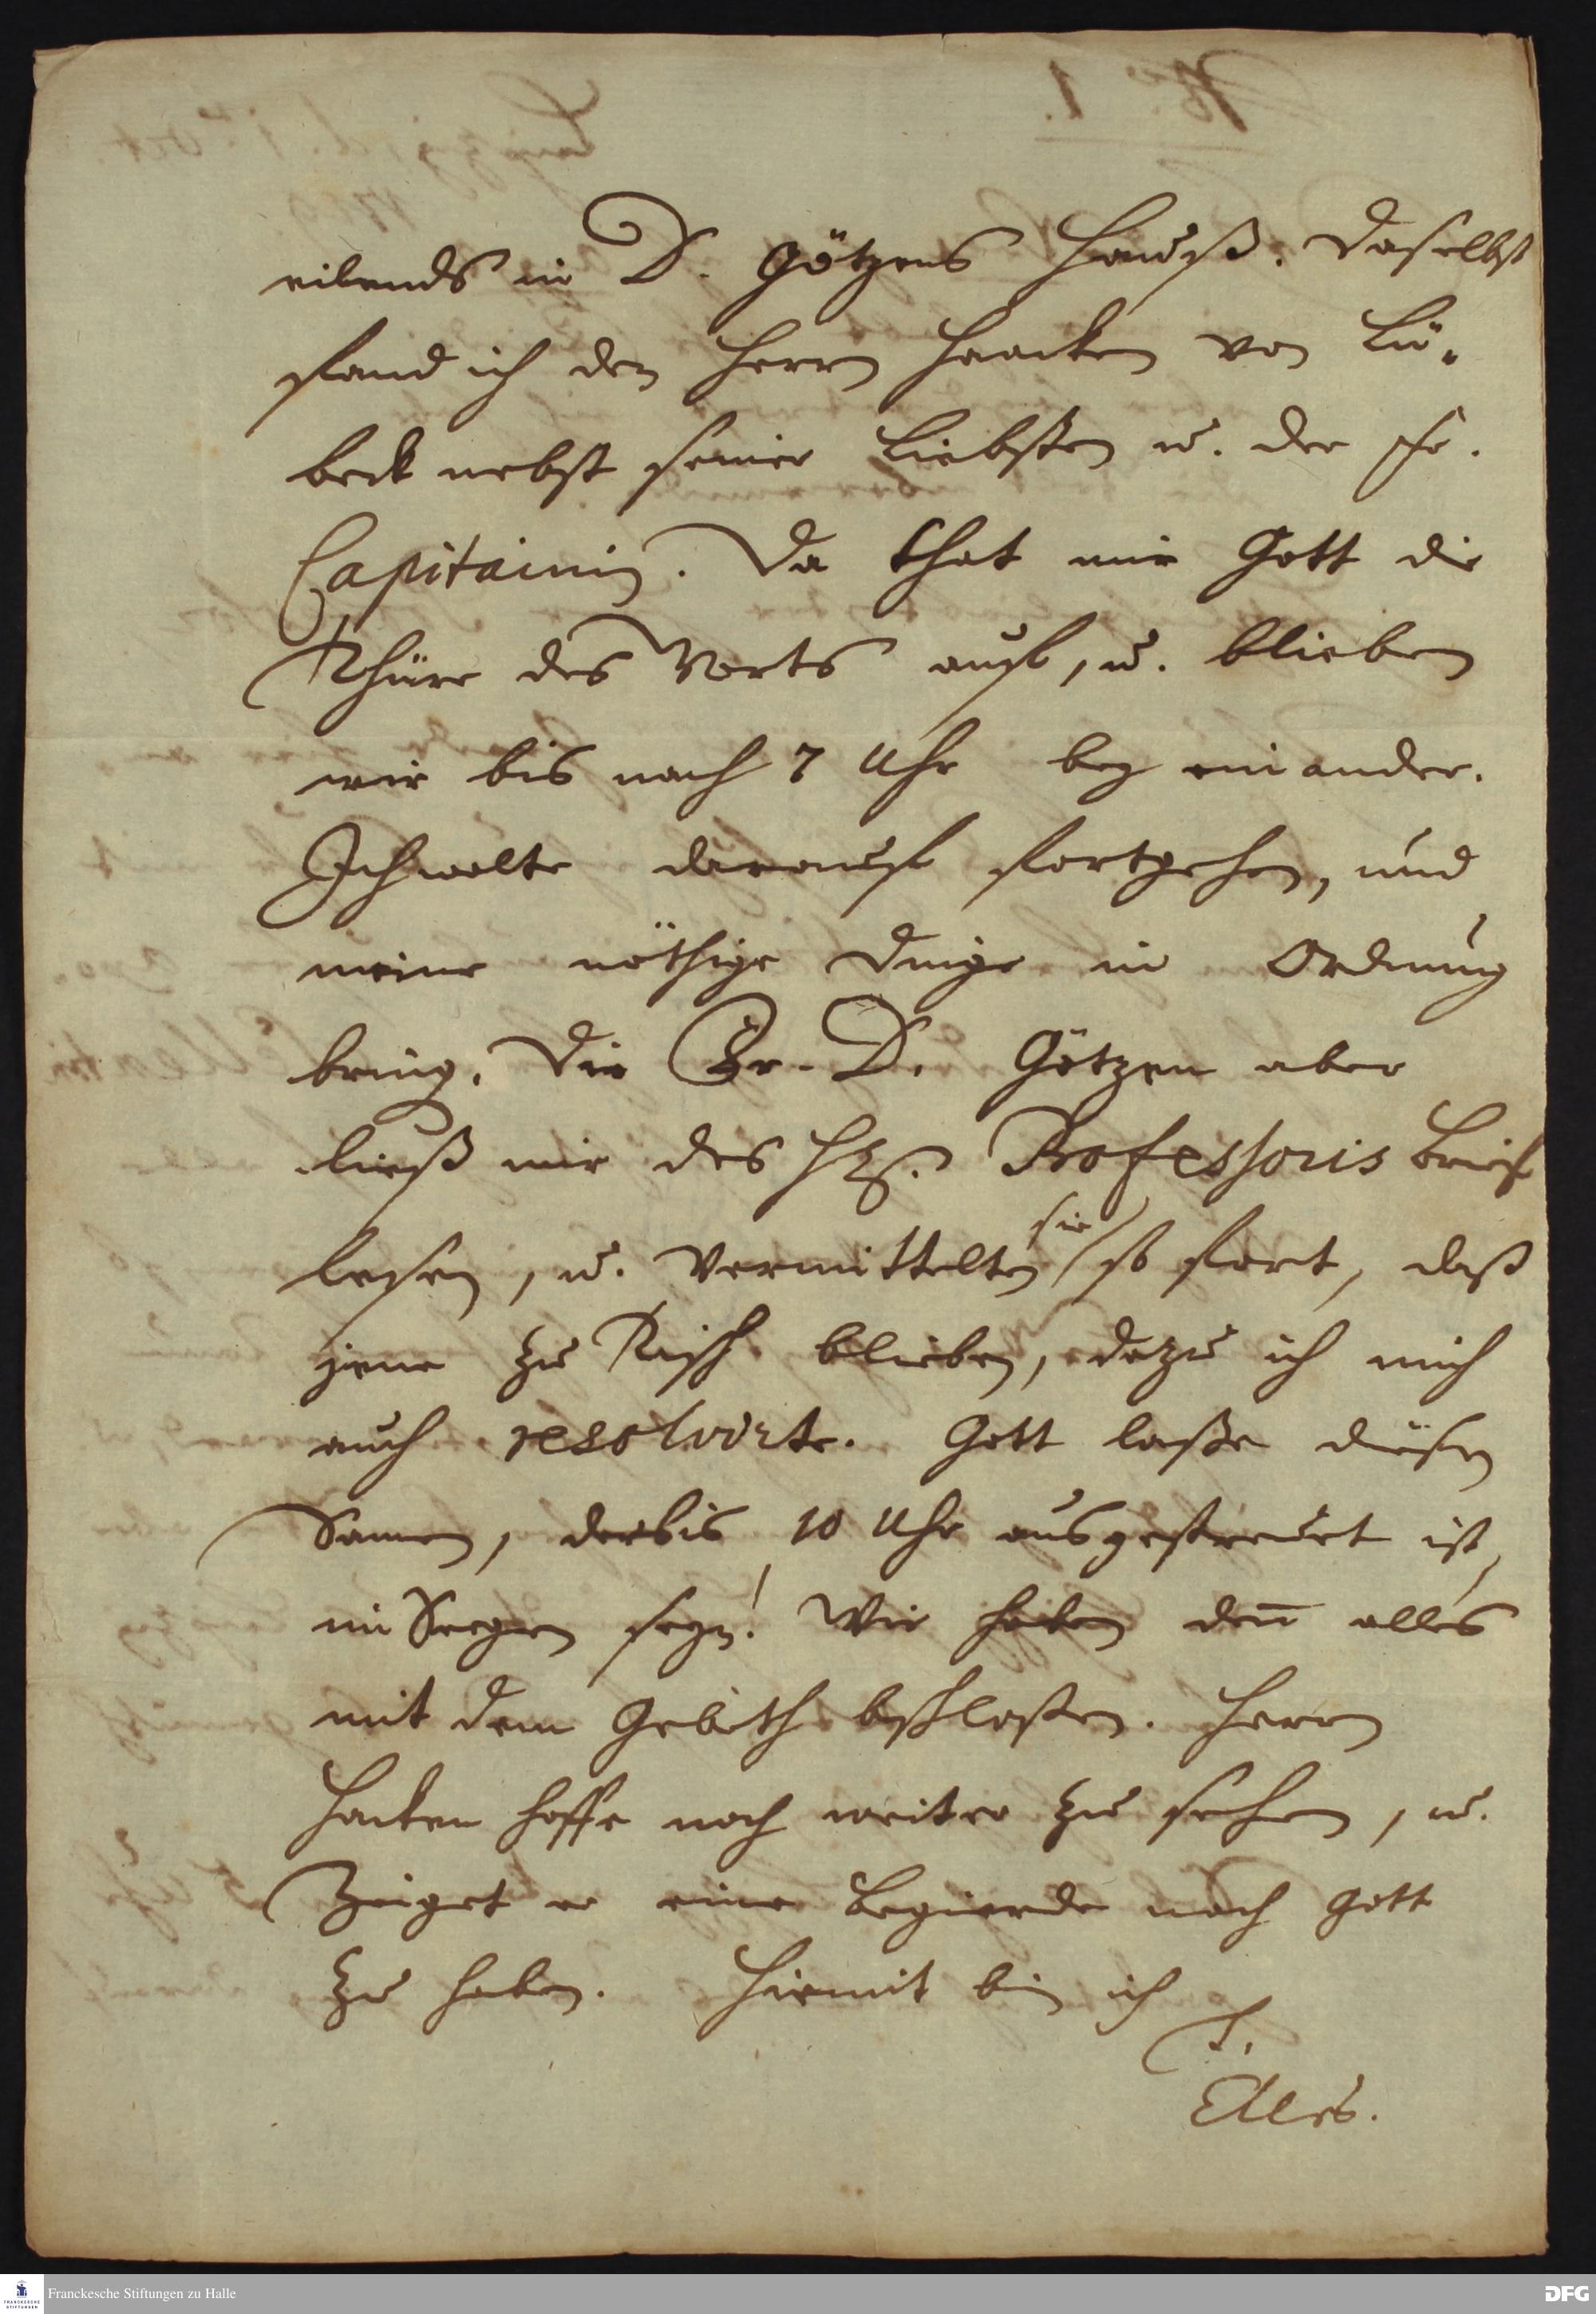 eilends in D. Götzens Hauß. Daselbst
fand ich den Herrn Haacken von Lü-
beck nebst seiner Liebsten u. der Fr.
Capitainin. Da that mir Gott die
Thüre des Worts auf, u. blieben
wir bis nach 7 Uhr bey einander.
Ich wolte darauf fortgehen, und
meine nöthige Dinge in Ordnung
bring. Die Fr. D. Götzen aber
ließ mir des H. Professoris Brief
lesen, u. vermittelten sie so fort, daß
jene zu Tisch blieben, dazu ich mich
auch resolvirte. Gott laße diesen
Samen, der bis 10 Uhr ausgestreuet ist,
im Seegen seyn! Wir haben den̄ alles
mit dem Gebeth beschloßen. Herrn
Hacken hoffe noch weiter zu sehen, u.
Zeiget er eine Begierde nach Gott
zu haben. Hiermit bin ich
E.
Franckesche Stiftungen zu Halle
DFG